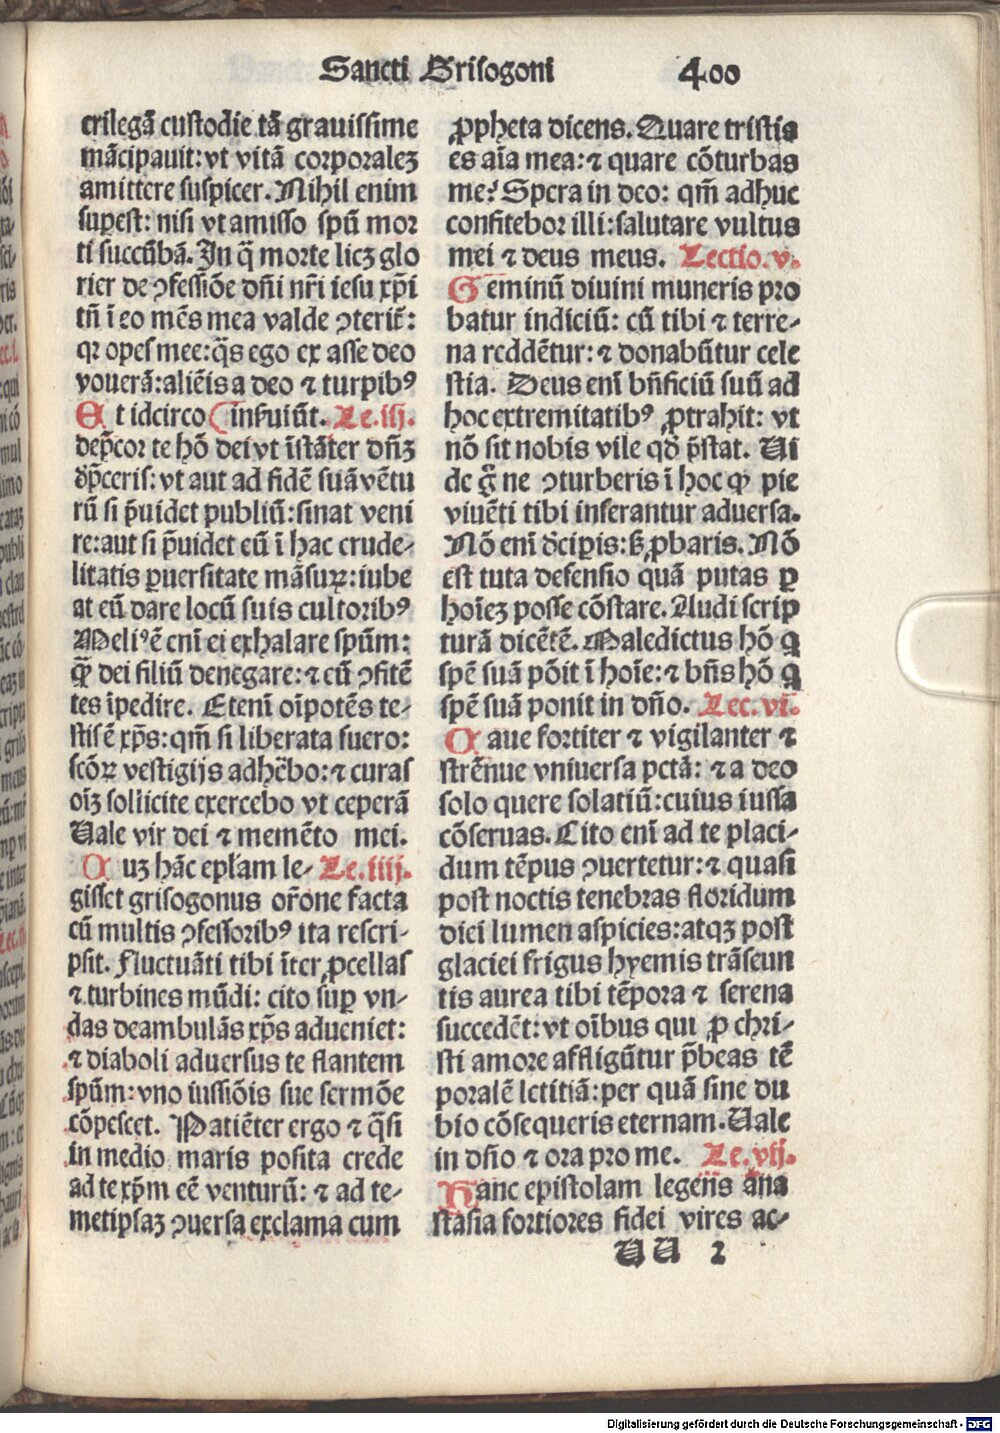 Sancti Grisogoni 400
crilegā custodie tā grauissime
mācipauit: vt vitā corporaleꝫ
amittere suspicer. Nihil enim
suꝑest: nisi vt amisso spū mor
ti succūbā. In q̄ morte licꝫ glo
rier de ꝯfessiōe dn̄i nr̄i iesu xp̄i
tn̄ i eo mēs mea valde ꝯterit̄:
qꝛ opes mee: q̄s ego ex asse deo
vouerā: aliēis a deo ⁊ turpibꝰ
Et idcirco (inſuiūt. Le.iij.
dep̄cor te hō dei vt īstāter dn̄ꝫ
dp̄ceris: vt aut ad fidē suā vētu
rū si p̄uidet publiū: sinat veni
re: aut si p̄uidet eū ī hac crude-
litatis ꝑuersitate māsuꝝ: iube
at eū dare locū suis cultoribꝰ
Meliꝰ ē eni ei exhalare spūm:
q̄ꝫ dei filiū denegare: ⁊ cū ꝯfitē
tes īpedire. Eteni oīpotēs te-
stis ē xp̄s: qm̄ si liberata fuero:
scōꝝ vestigijs adhēbo: ⁊ curas
oīꝫ sollicite exercebo vt ceperā
Uale vir dei ⁊ memēto mei.
Cuꝫ hāc epl̄am le- Le.iiij.
gisset grisogonus or̄one facta
cū multis ꝯfessoribꝰ ita rescri-
psit. Fluctuāti tibi īter ꝓcellas
⁊ turbines mūdi: cito suꝑ vn-
das deambulās xp̄s adueniet:
⁊ diaboli aduersus te flantem
spūm: vno iussiōis sue sermōe
cōpescet. Patiēter ergo ⁊ q̄si
in medio maris posita crede
ad te xp̄m eē venturū: ⁊ ad te-
metipsaꝫ ꝯuersa exclama cum
ꝓpheta dicens. Quare tristis
es aīa mea: ⁊ quare cōturbas
me? Spera in deo: qm̄ adhuc
confitebor illi: salutare vultus
mei ⁊ deus meus. Lectio.v.
Geminū diuini muneris pro
batur indiciū: cū tibi ⁊ terre-
na reddētur: ⁊ donabūtur cele
stia. Deus eni bn̄ficiū suū ad
hoc extremitatibꝰ ꝓtrahit: vt
nō sit nobis vile qd̄ p̄stat. Ui
de g̊ ne ꝯturberis ī hoc ꝙ pie
viuēti tibi inserantur aduersa.
Nō eni dcipis: sꝫ ꝓbaris. Nō
est tuta defensio quā putas ꝑ
hoīeꝫ posse cōstare. Audi scrip
turā dicētē. Maledictus hō q
spē suā pōit ī hoīe: ⁊ bn̄s hō q
spē suā ponit in dn̄o. Lec.vi.
Caue fortiter ⁊ vigilanter ⁊
strēnue vniuersa pctā: ⁊ a deo
solo quere solatiū: cuius iussa
cōseruas. Cito eni ad te placi-
dum tēpus ꝯuertetur: ⁊ quasi
post noctis tenebras floridum
diei lumen aspicies: atqꝫ post
glaciei frigus hyemis trāseun
tis aurea tibi tēpora ⁊ serena
succedēt: vt oībus qui ꝓ chri-
sti amore affligūtur p̄beas tē
poralē letitiā: per quā sine du
bio cōsequeris eternam. Uale
in dn̄o ⁊ ora pro me. Le.vij.
Hanc epistolam legens ana
stasia fortiores fidei vires ac-
UU 2
Digitalisierung gefördert durch die Deutsche Forschungsgemeinschaft - DFG